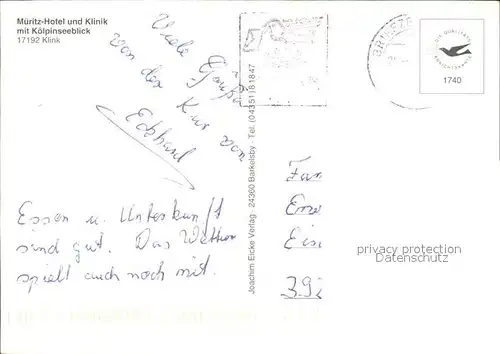 Müritz-Hotel und Klinik
mit Kölpinseeblick
17192 Klink
Viele Grüße
von der Kur von
Eckhard
Essen u. Unterkunft
sind gut. Das Wetter
spielt auch noch mit.
Joachim Eicke Verlag · 24360 Barkelsby · Tel. (04351) 81847
1740
Fam
Ei
392
privacy protection
Datenschutz